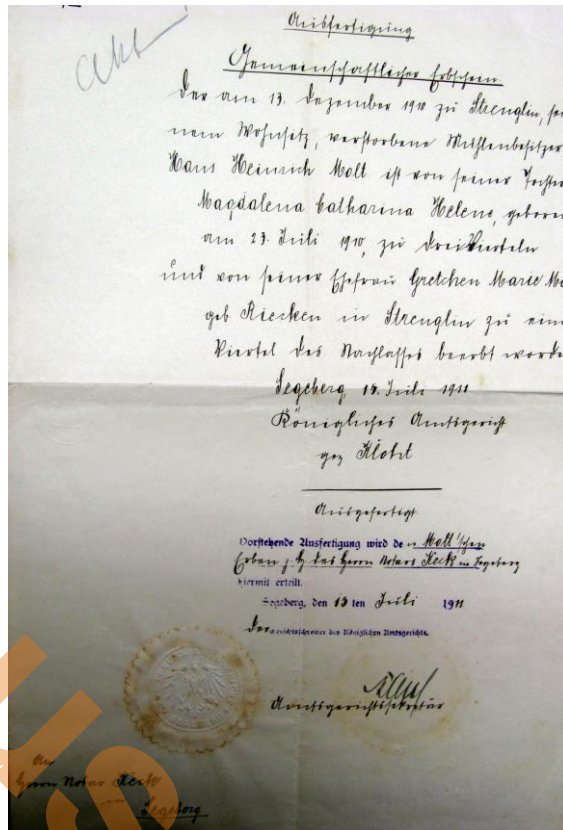 Ausfertigung
Gemeinschaftlicher Erbschein
Der am 13. Dezember 1910 zu Strenglin, sei
nem Wohnsitz, verstorbene Mühlenbesitzer
Hans Heinrich Molt ist von seiner Tochter
Magdalena Catharina Helene, geboren
am 23. Juli 1910, zu drei Vierteln
und von seiner Ehefrau Gretchen Marie Mo
geb Riecken in Strenglin zu eine
Viertel des Nachlasses beerbt worde
Segeberg, 14. Juli 1911
Königliches Amtsgericht
gez
Ausgefertigt
Vorstehende Ausfertigung wird den Molt'schen
Erben z. H. des Herrn Notars Keck in Segeberg
hiermit erteilt.
Segeberg, den 15 ten Juli 1911
Der Gerichtsschreiber des Königlichen Amtsgerichts.
Amtsgerichtssekretär
An
Herrn Notar Keck
in
Segeberg